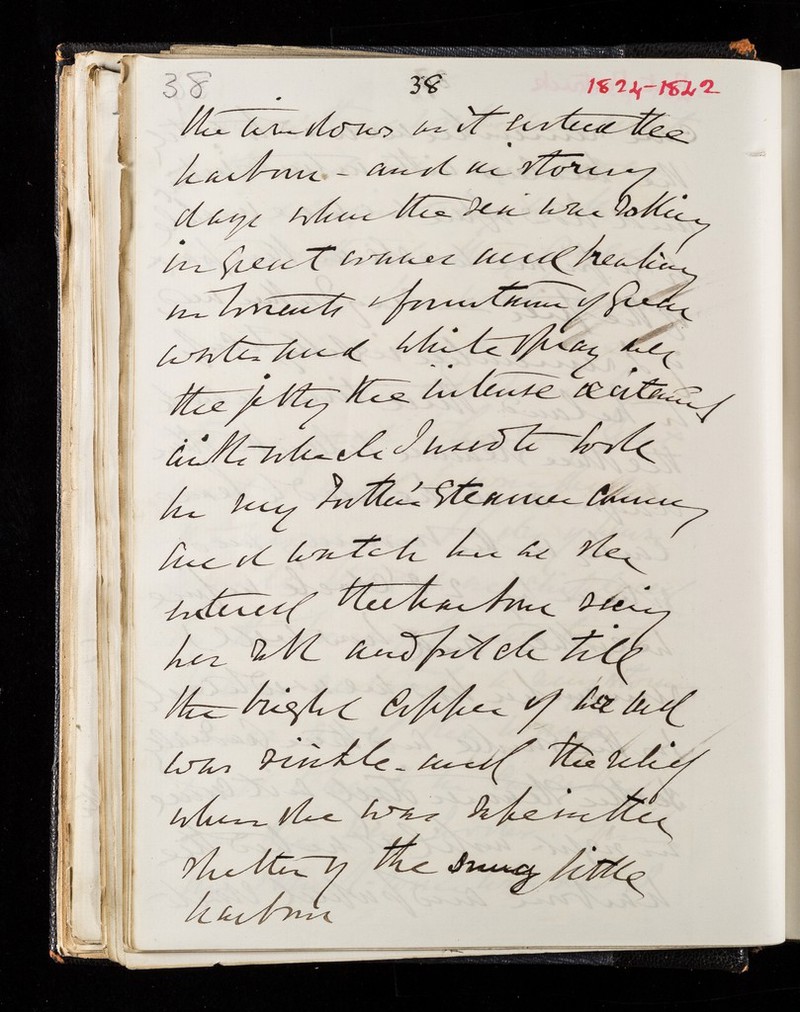 38 38 1824-1842
the windows as it entered the
harbour - and in stormy
days when the sea was rolling
in great waves and breaking
in torrents & fountains of green
water and white spray over
the jetty the intense excitement
with which I used to look
for my Father's Steamer coming
and watch her as she
entered the harbour seeing
her roll and pitch till
the bright copper of her keel
was visible - and the relief
when she was safe in the
shelter of the snug little
harbour